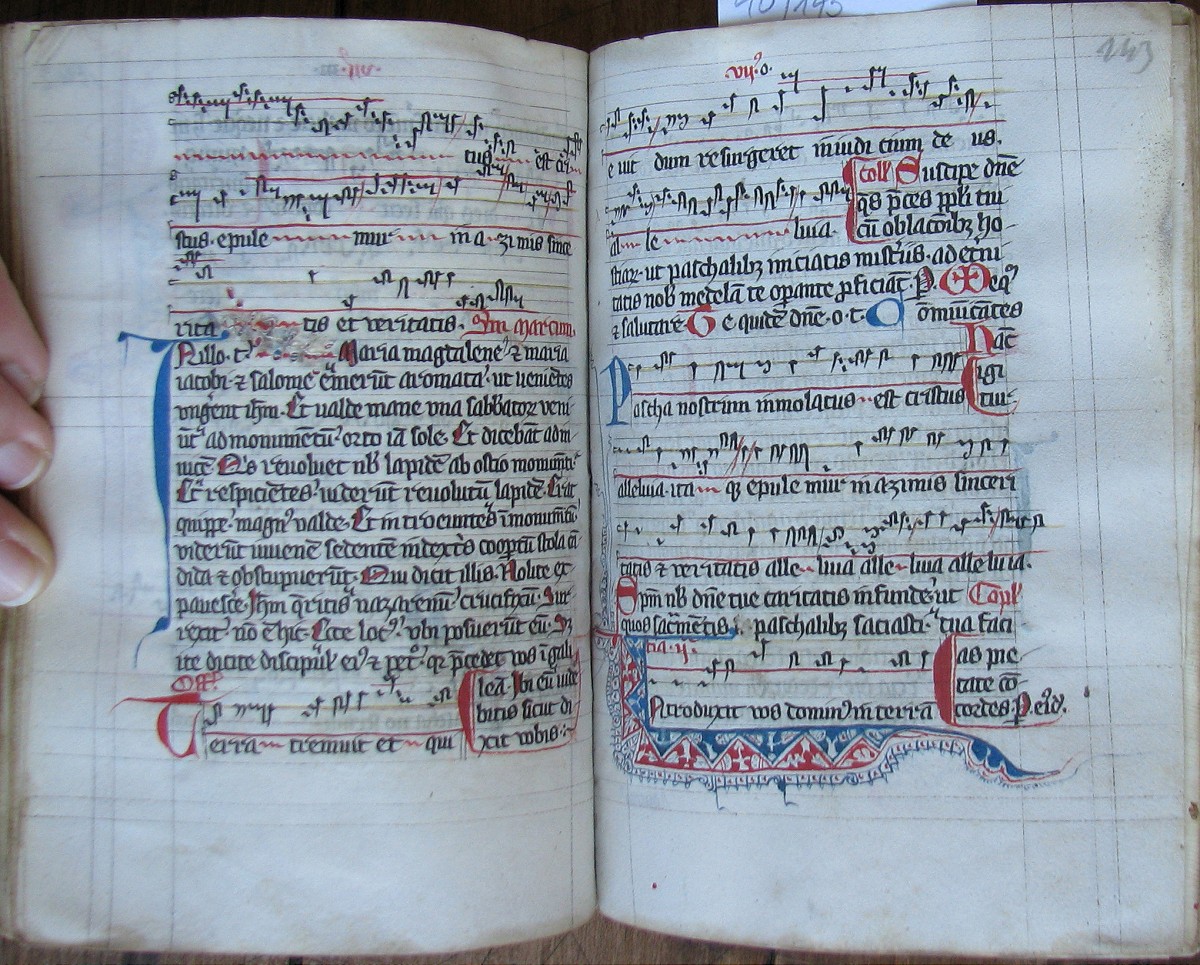 tus est cri
stus. epule mur in azimis since
rita tis et veritatis. Sm marcum.
In illo. t. Maria magdalene et maria
iacobi et salome emerut aromata. ut venietes
ungerent ihm. Et valde mane una sabbatorz veni
ut ad monumetu orto ia sole. Et dicebat adin
uice Qis revoluet nb lapide ab ostio monumti
Et respicietes viderut revolutu lapide. Erat
quippe magn valde. Et introeuntes i monumtu
viderut iuvene sedente in dextis coopertu stola ca
dida et obstupuerut. Qui dicit illis. Nolite ex
pavesce. Ihm qritis nazarenu crucifixu. Sur
rexit no e hic. Ecce loc ubi posuerut eu. Sz
ite dicite discipul ei et pet qr pcedet vos i gali
lea. Ibi eu vide
bitis sicut di
xit vobis.
Off.
Terra tremuit et qui
vii. o. 143
e vit dum resurgeret in iudi cium de us.
Coll Suscipe dne
qs pces ppli tui
al le luia. cu oblacoibz ho
stiar. ut paschalibz iniciatis misteriis. ad eterni
tatis nob medela te operante pficiat. P. Eeq
et salutare Te quide dne. o. t. Comunicates
Hac
igi
Pascha nostrum immolatus est cristus tur
alleluia. ita q epule mur in azimis sinceri
tatis et veritatis alle luia alle luia alle luia.
Spm nb dne tue caritatis infunde. ut Copl
quos sacmetis paschalibz saciasti. tua faci
ia. ii. as pie
tate co
Introduxit vos dominus in terra cordes. P eid.